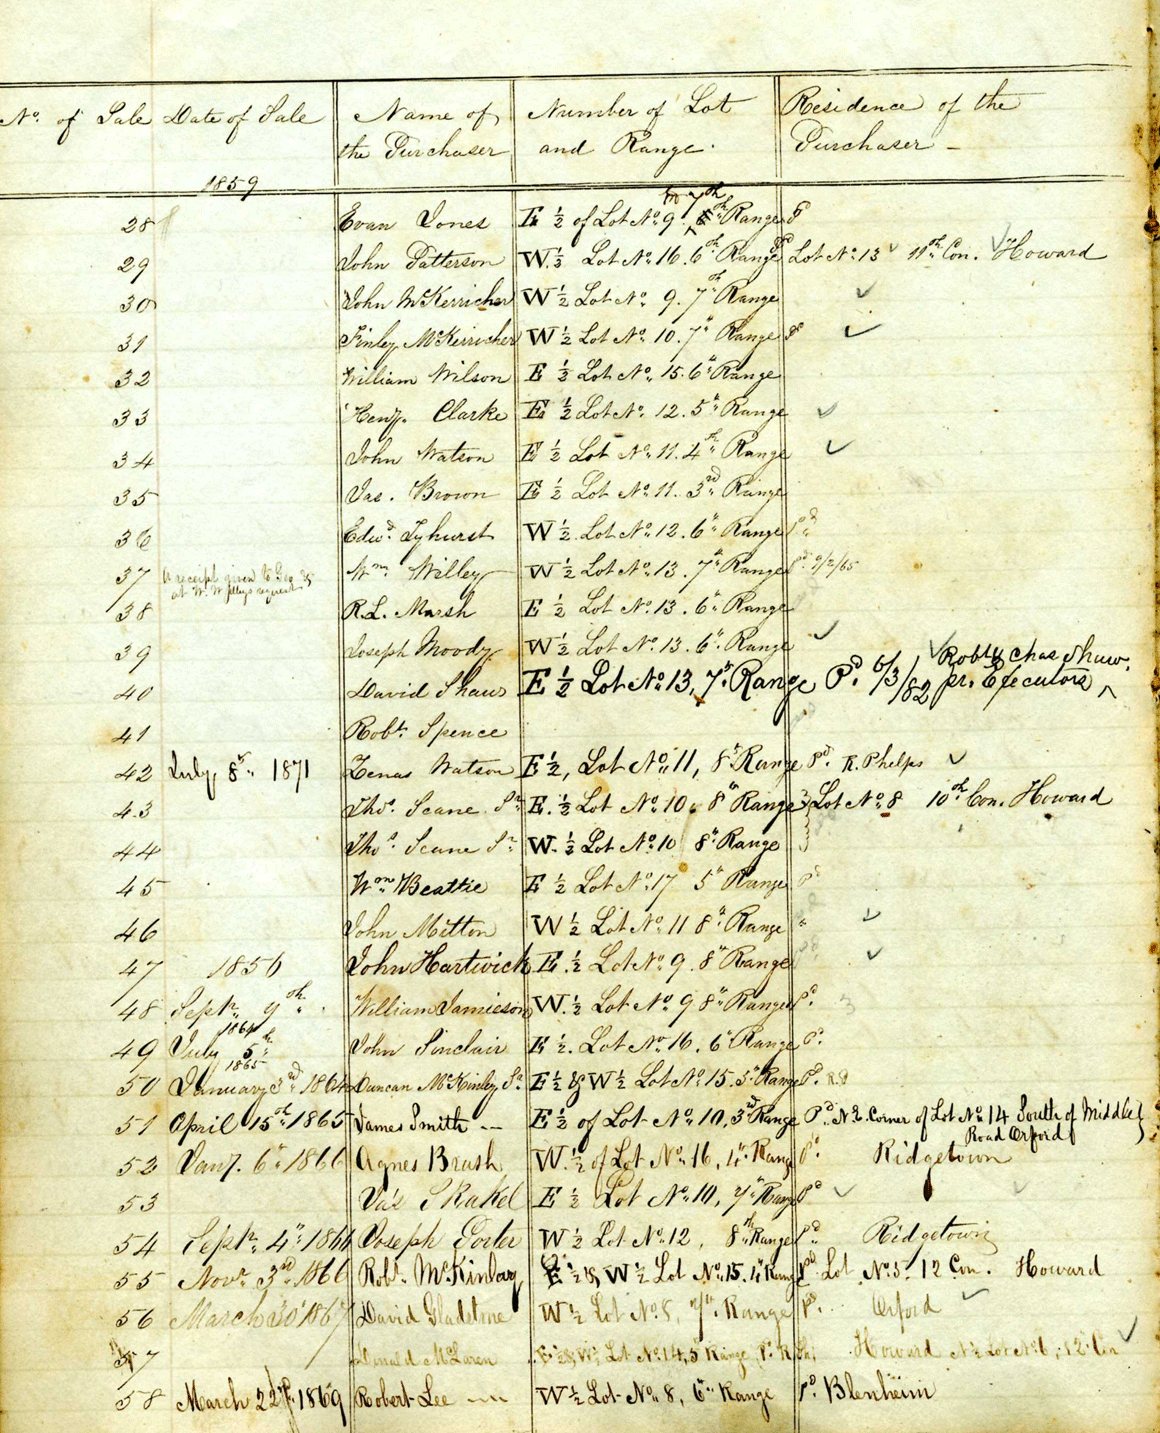 No. of Sale Date of Sale Name of the Purchaser Number of Lot and Range. Residence of the Purchaser -
1859
28 Evan Jones E ½ of Lot No. 9. in 7th Range Pd
29 John Patterson W. ½ Lot No. 16. 6th Range Pd Lot No. 13 11th Con. Howard
30 John McKerricher W ½ Lot No. 9. 7th Range
31 Finley McKerricher W ½ Lot No. 10. 7th Range Pd
32 William Wilson E ½ Lot No. 15. 6th Range
33 Henry Clarke E ½ Lot No. 12. 5th Range
34 John Watson E ½ Lot No. 11. 4th Range
35 Jas. Brown E ½ Lot No. 11. 3rd Range
36 Edwd. Tyhurst W ½. Lot No. 12. 6th Range Pd
37 A receipt given to Geo at W. Willey's request Wm. Willey W ½ Lot No. 13. 7th Range Pd. 9/2/65
38 R.L. Marsh E ½ Lot No. 13. 6th Range
39 Joseph Moody W ½ Lot No. 13. 6th Range
40 David Shaw E ½ Lot No. 13, 7th Range Pd. 6/3/82 Robt & Chas Shaw. pr. Executors
41 Robt. Spence
42 July 8th 1871 Zenas Watson E ½, Lot No. 11, 8th Range Pd. R. Phelps
43 Thos. Scane Sr. E. ½ Lot No. 10. 8th Range Lot No. 8 10th Con. Howard
44 Thos. Scane Sr. W. ½ Lot No. 10 8th Range
45 Wm. Beattie E ½ Lot No. 17 5th Range Pd
46 John Mitton W ½ Lot No. 11 8th Range "
47 1856 John Hartwick E. ½ Lot No. 9. 8th Range Pd
48 Septr. 9th. William Jamieson W. ½ Lot No. 9 8th Range Pd.
49 1864 July 5th John Sinclair E ½. Lot No. 16. 6th Range Pd.
50 1865 January 3rd 1864 Duncan McKinley Sr. E ½ & W ½ Lot No. 15. 5th Range Pd. R.P
51 April 15th 1865 James Smith -- E ½ of Lot No. 10, 3rd Range Pd. N.E. Corner of Lot No. 14 South of Middle Road Orford
52 Jany. 6th 1866 Agnes Brush W. ½ of Lot No. 16, 4th Range Pd. Ridgetown
53 Jas Skakel E ½ Lot No. 10, 7th Range Pd
54 Septr. 4th 1866 Joseph Porter W ½ Lot No. 12, 8th Range Pd. Ridgetown
55 Novr. 3rd 1866 Robt. McKinlay E ½ & W ½ Lot No. 15. 4th Range Pd Lot No. 5. 12 Con. Howard
56 March 30th 1867 David Gladstone W ½ Lot No. 8, 7th Range Pd. Orford
57 Donald McLaren E ½ & W ½ Lot No. 14, 5th Range, Pd. Howard N ½ Lot No. 6, 12th Con
58 March 22nd 1869 Robert Lee -- W ½ Lot No. 8, 6th Range Pd. Blenheim